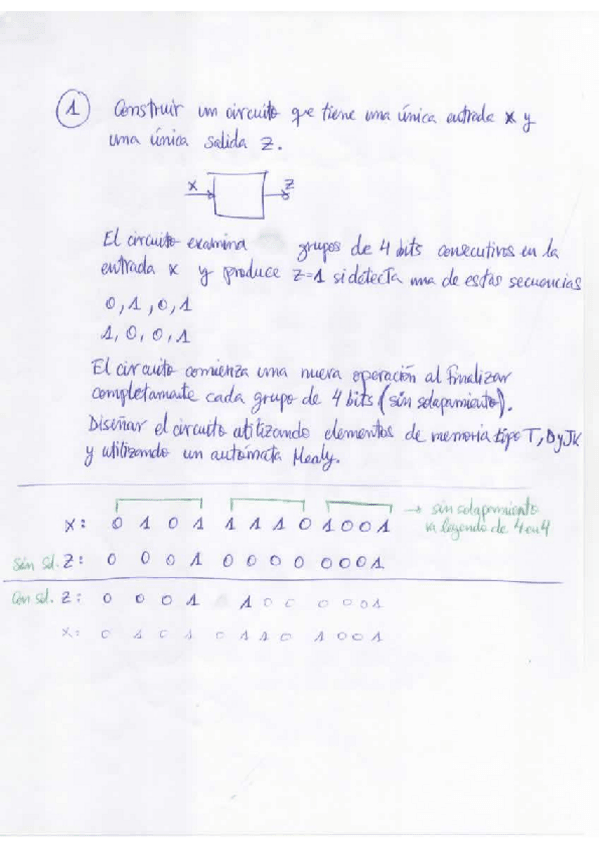 1 Construir un circuito que tiene una única entrada x y
una única salida z.
x z
El circuito examina grupos de 4 bits consecutivos en la
entrada x y produce z=1 si detecta una de estas secuencias
0, 1, 0, 1
1, 0, 0, 1
El circuito comienza una nueva operación al finalizar
completamente cada grupo de 4 bits (sin solapamiento).
Diseñar el circuito utilizando elementos de memoria tipo T, D y JK
y utilizando un autómata Mealy.
x: 0 1 0 1 1 1 1 0 1 0 0 1 → sin solapamiento
va leyendo de 4 en 4
Sin sol. z: 0 0 0 1 0 0 0 0 0 0 0 1
Con sol. z: 0 0 0 1 1 0 0 0 0 0 1
x: 0 1 0 1 0 1 1 0 1 0 0 1